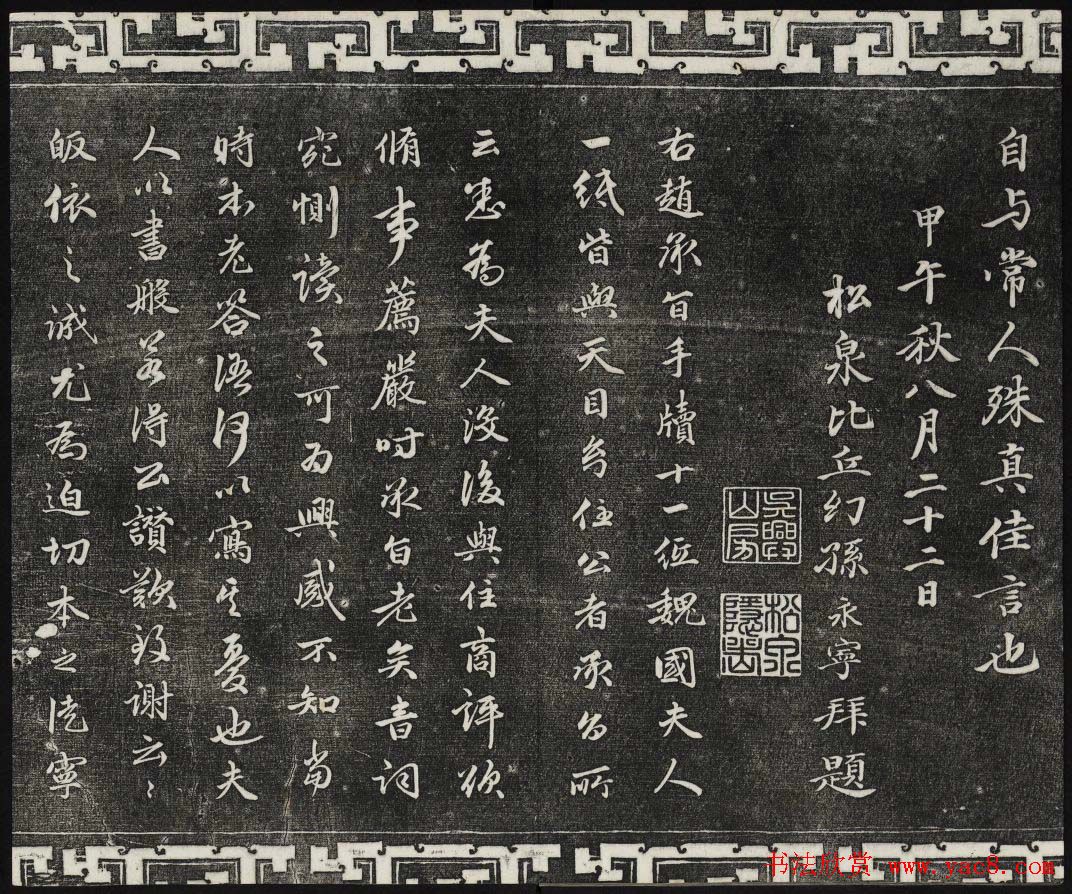 自与常人殊真佳言也
甲午秋八月二十二日
松泉比丘幻孫永寧拜題
吳興山房
松泉
右趙承旨手牘十一 魏國夫人
一紙皆與天目幻住公者承公所
云悉為夫人沒後與住商評欲
脩事薦嚴時承旨老矣音詞
宛惻讀之可為興感不知當
時本老答語何以寫其憂也夫
人以書般若得公讚歎致謝云々
皈依之誠尤為迫切本之徒寧
书法欣赏 www.yac8.com